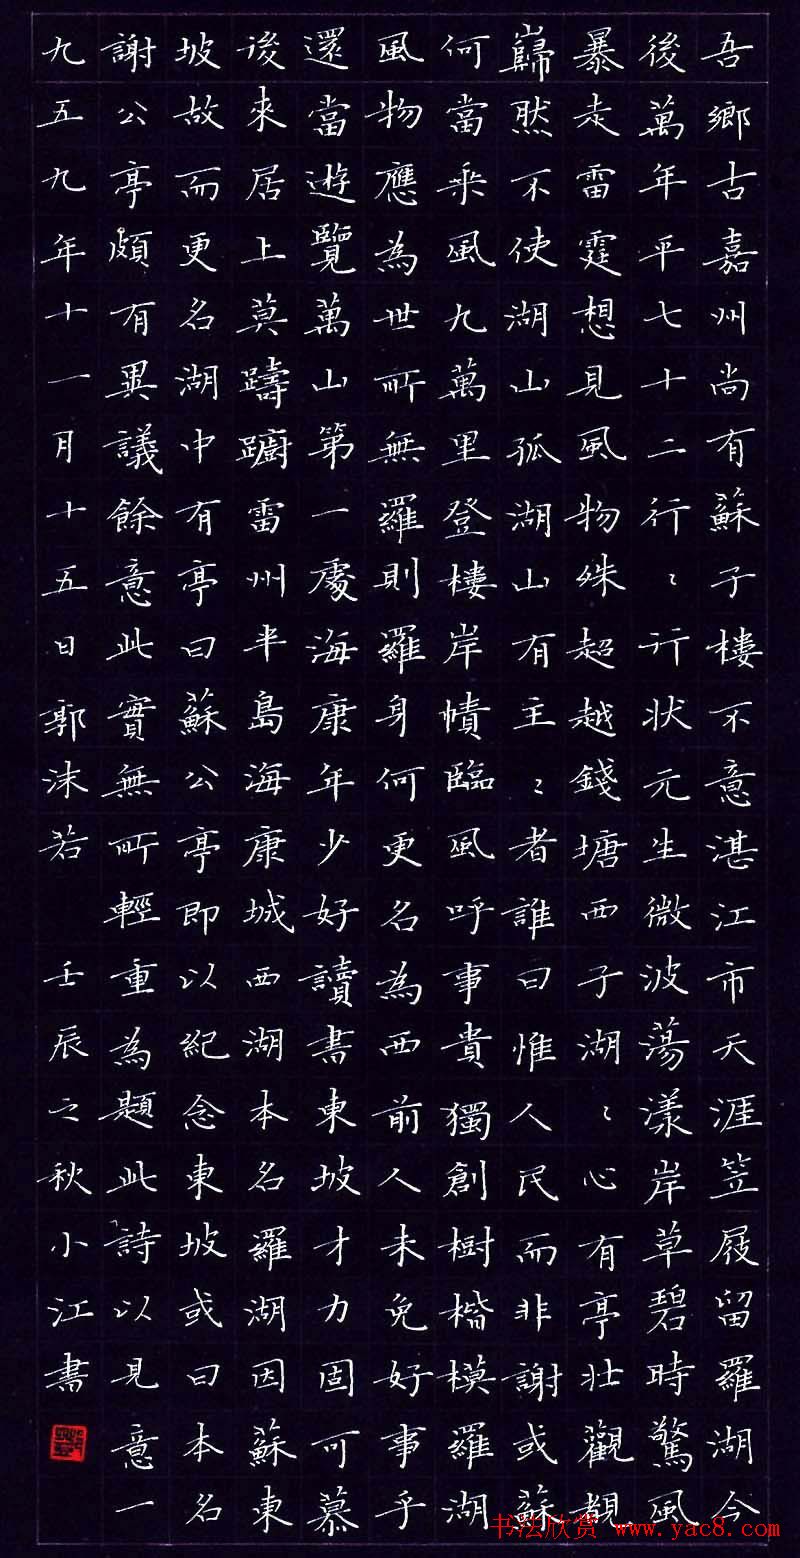 吾鄉古嘉州尚有蘇子樓不意湛江市天涯笠屐留羅湖今
後萬年平七十二行〻行狀元生微波蕩漾岸草碧時驚風
暴走雷霆想見風物殊超越錢塘西子湖〻心有亭壯觀覩
巋然不使湖山孤湖山有主〻者誰曰惟人民而非謝或蘇
何當乘風九萬里登樓岸幘臨風呼事貴獨創樹楷模羅湖
風物應為世所無羅則羅身何更名為西前人未免好事乎
還當遊覽萬山第一處海康年少好讀書東坡才力固可慕
後來居上莫躊躕雷州半島海康城西湖本名羅湖因蘇東
坡故而更名湖中有亭曰蘇公亭即以紀念東坡或曰本名
謝公亭頗有異議餘意此實無所輕重為題此詩以見意一
九五九年十一月十五日郭沫若 壬辰之秋小江書
书法欣赏 www.yac8.com